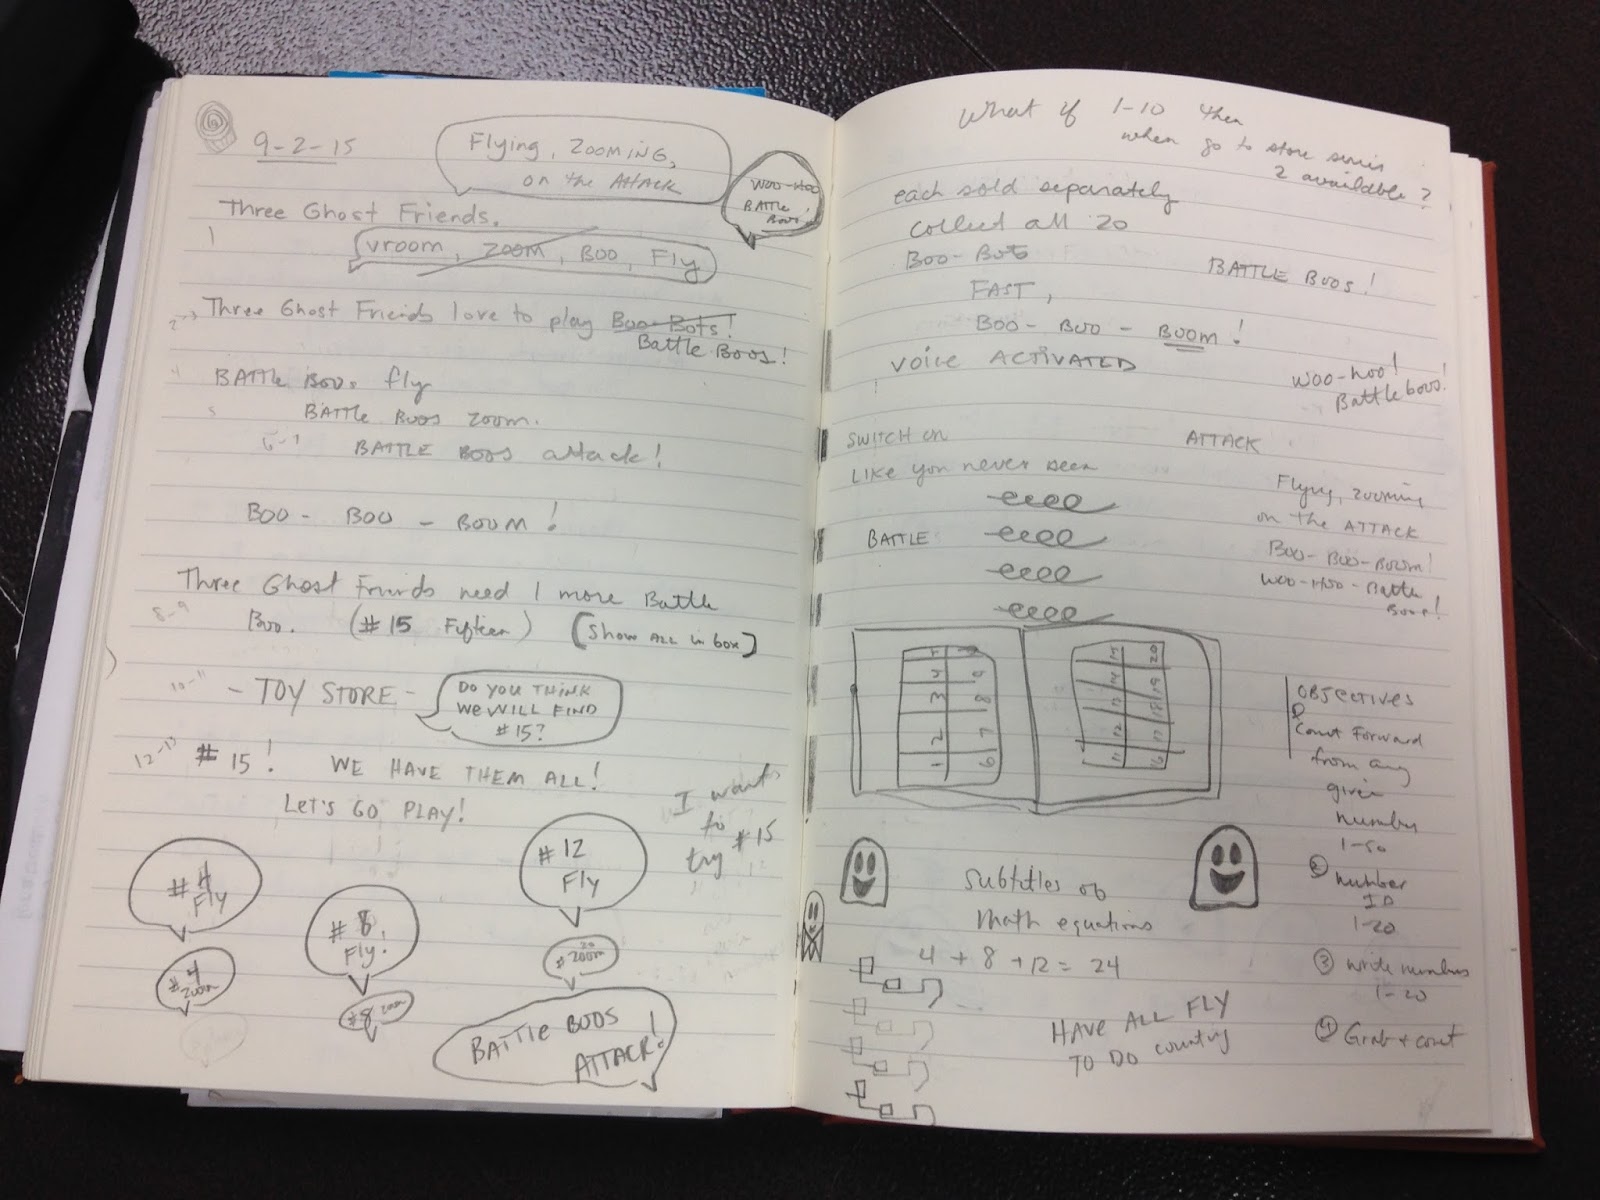 9-2-15
Flying, ZOOMING,
on the ATTACK
WOO-HOO
BATTLE
BOOS!
Three Ghost Friends.
1
vroom, ZOOM, BOO, Fly
2
Three Ghost Friends love to play Boo-Bots!
Battle Boos!
4
BATTLE BOOs fly
5
BATTLE BOOS ZOOM.
6-7
BATTLE BOOS attack!
BOO - BOO - BOOM!
Three Ghost Friends need 1 more Battle
8-9
Boo. (#15 Fifteen) [Show ALL in box]
10-11
- TOY STORE -
DO YOU THINK
WE WILL FIND
#15?
12-13
#15! WE HAVE THEM ALL!
LET'S GO PLAY!
I want
to
try #15
#4
Fly
#8
Fly!
#12
Fly
#4
zoom
#8 zoom
20
zoom
BATTLE BOOS
ATTACK!
What if 1-10 then
when go to store series
2 available?
each sold separately
collect all 20
Boo-Bots
BATTLE BOOS!
FAST,
BOO - BOO - BOOM!
VOICE ACTIVATED
WOO-HOO!
Battle boos!
SWITCH ON
ATTACK
LIKE you never seen
Flying, zooming
on the ATTACK
BATTLE
BOO-BOO-BOOM!
WOO-HOO-Battle
Boos!
1 2 3 4 5
6 7 8 9
11 12 13 14 15
16 17 18 19 20
OBJECTIVES
Count Forward
from any
given
number
1-50
② number
ID
1-20
③ write numbers
1-20
④ Grab + count
subtitles of
math equations
4 + 8 + 12 = 24
HAVE ALL FLY
TO DO counting